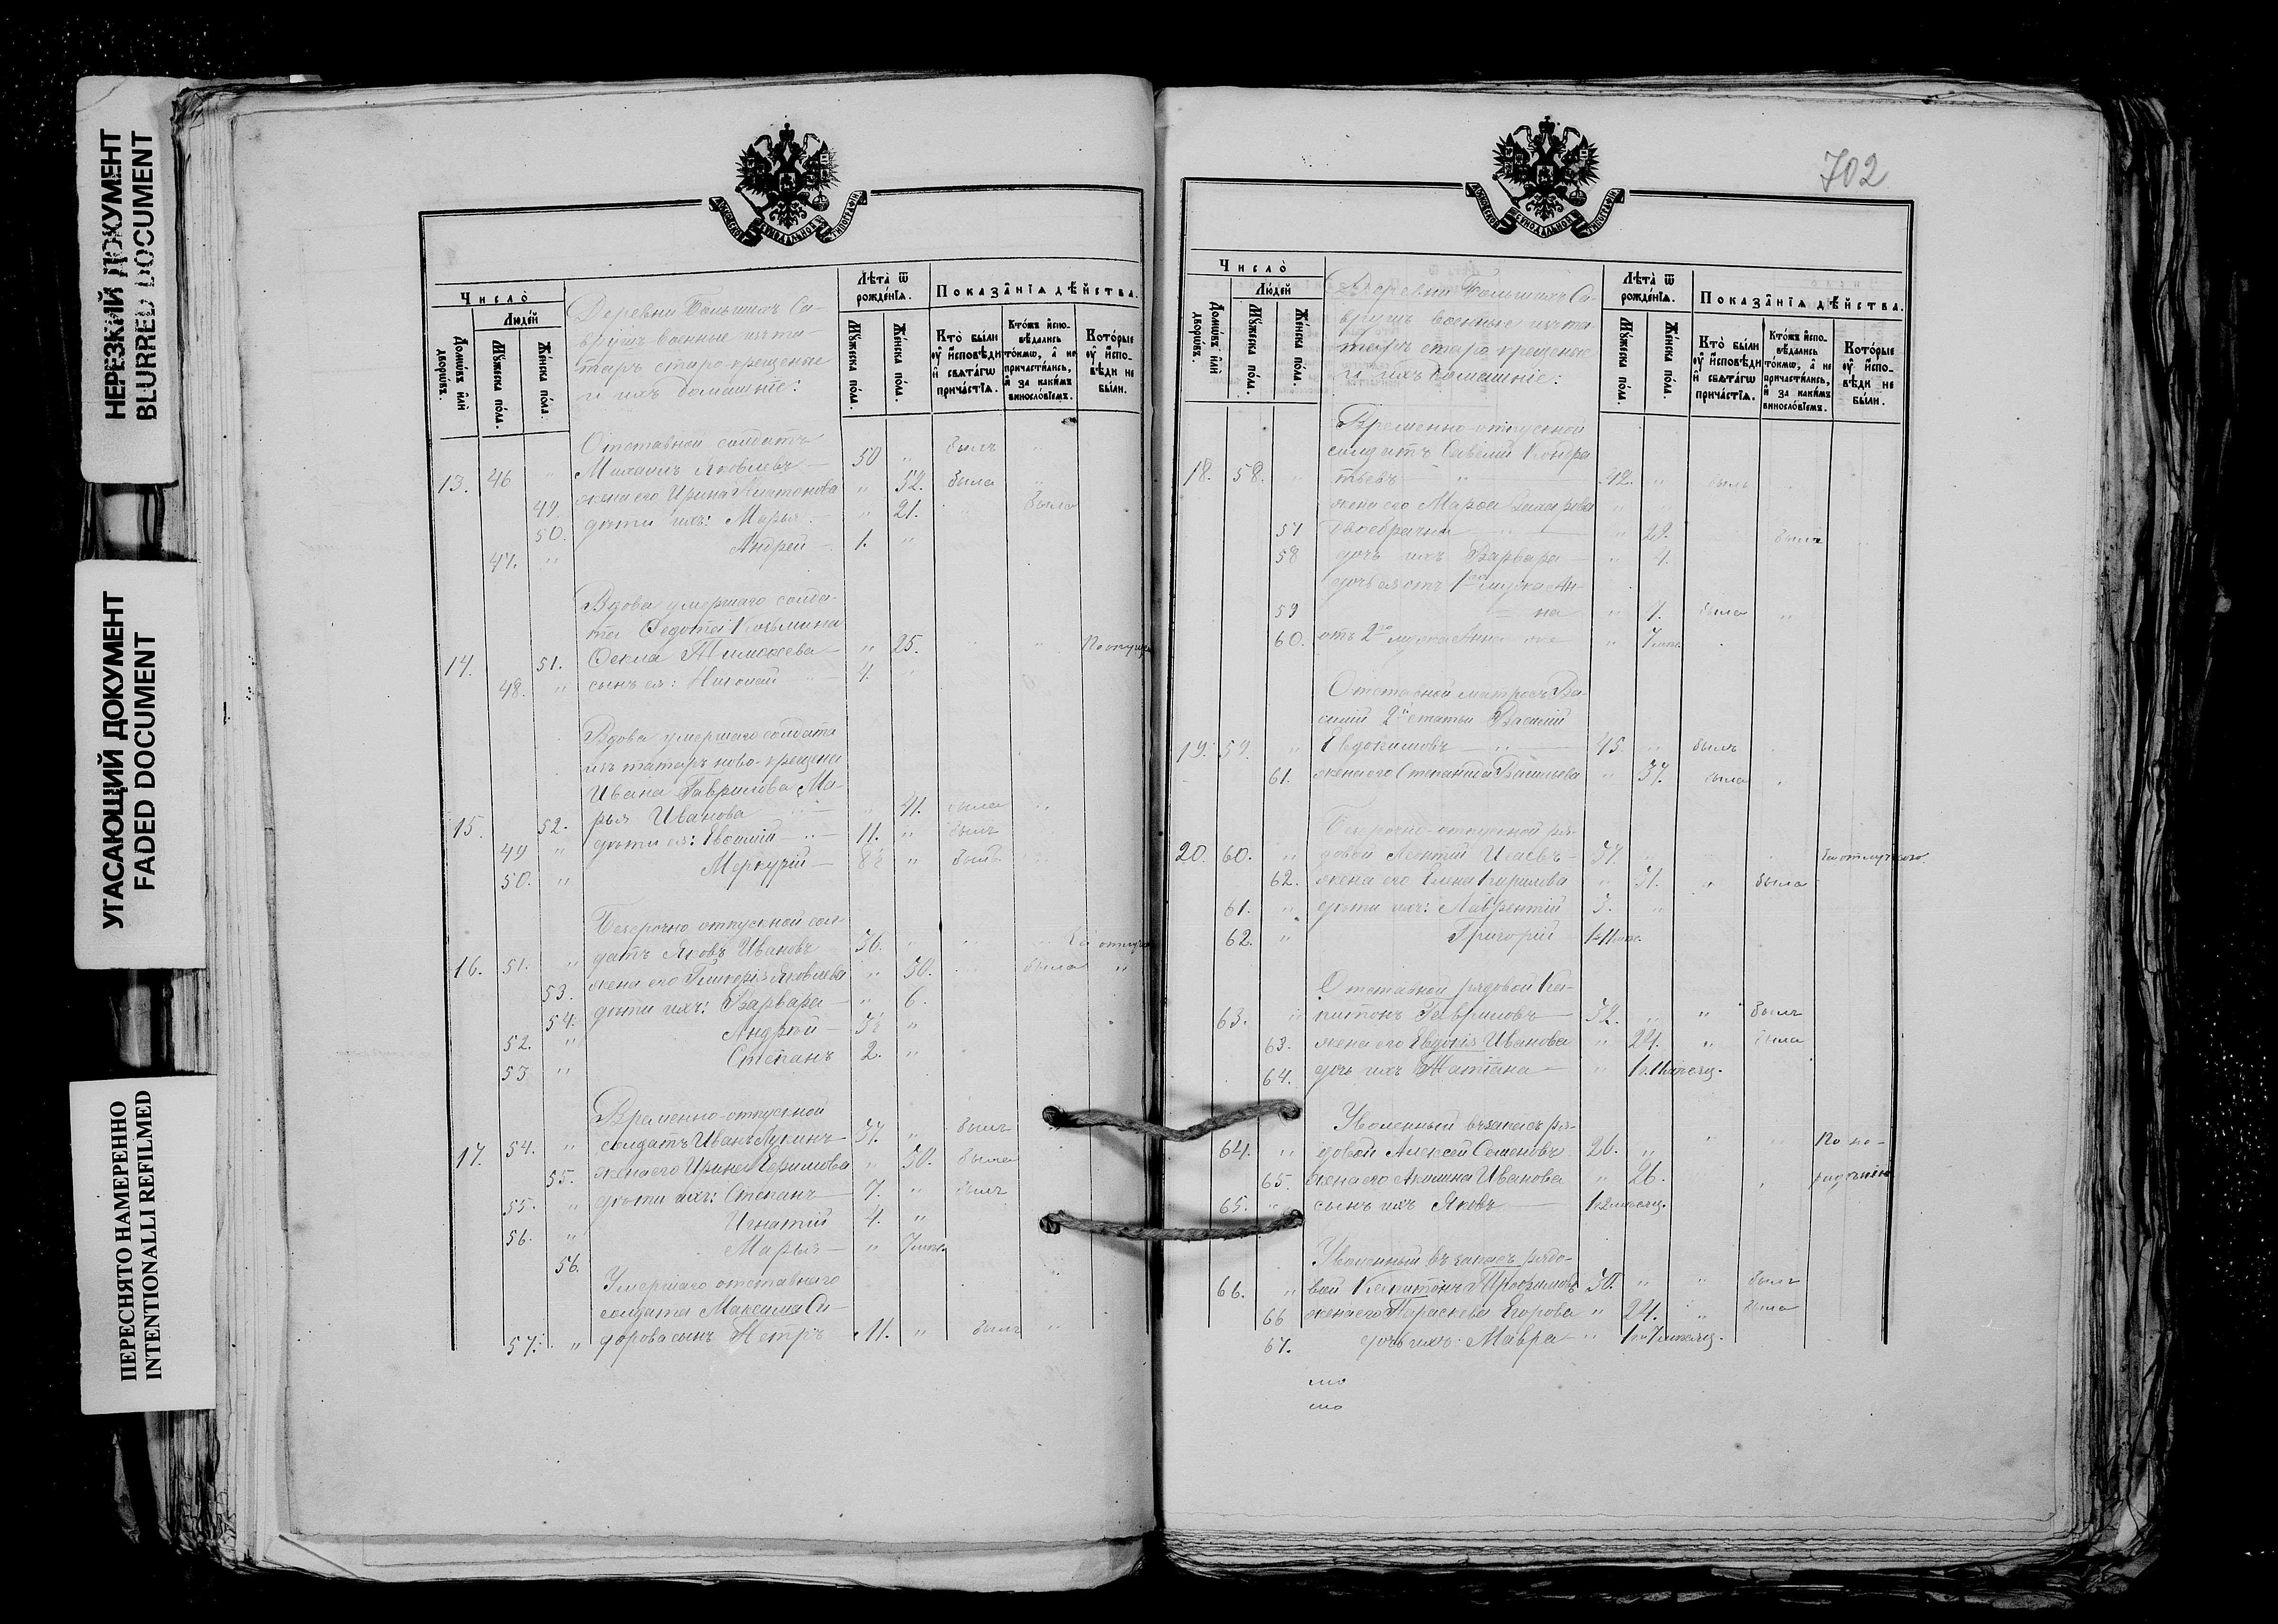 НЕРЕЗКИЙ ДОКУМЕНТ
BLURRED DOCUMENT
УГАСАЮЩИЙ ДОКУМЕНТ
FADED DOCUMENT
ПЕРЕСНЯТО НАМЕРЕННО
INTENTIONALLI REFILMED
Число̀
Люде́й
Домѡ́въ и҆лѝ дворѡ́въ.
Мꙋ́жеска по́ла.
Же́нска по́ла.
Деревни Большихъ Са-
врушъ военные изъ та-
таръ старо-крещеные
и ихъ домашніе:
Лѣ́та ѿ рожде́нїѧ.
Мꙋ́жеска по́ла.
Же́нска по́ла.
Показа̑нїѧ дѣ́йства.
Кто̀ бы́ли ᲂу҆ и҆сповѣ́ди и҆ свѧта́гѡ прича́стїѧ.
Кто́жъ и҆спо-вѣ́дались то́кмѡ, а҆ не причасти́лись, и҆ за каки́мъ винословїемъ.
Кото́рые ᲂу҆ и҆спо-вѣди не бы́ли.
Отставной солдатъ
13. 46 " Михаилъ Яковлевъ — 50 " былъ "
49. жена его Ирина Платонова " 52. была "
50. дѣти ихъ: Марья — " 21. " была
47. " Андрей — 1. "
Вдова умершаго солда-
та Ѳедота Козьмина
14. 51. Ѳекла Тимоѳеева — " 25. "
48. " сынъ ея: Николай 4. "
Вдова умершаго солдата
изъ татаръ ново-крещена
Ивана Гаврилова Ма-
15. 52. рья Иванова — " 41. была "
49 " дѣти ея: Евсимій — " — 11. " былъ
50. " Меркурій — 8½ " былъ
Безсрочно отпускной сол-
16. 51. " датъ Яковъ Ивановъ 36. "
53. жена его Гликерія Яковлева " 30. была "
54. дѣти ихъ: Варвара — " 6.
52. " Андрей — 3½ "
53 " Степанъ 2. "
Временно-отпускной
17. 54. " солдатъ Иванъ Лукинъ 37. " былъ
55. жена его Ирина Ефимова " 30. была
55. " дѣти ихъ: Степанъ — 7. " былъ
56. " Игнатій 4. "
56. Марья — " 7 мѣс.
Умершаго отставнаго
солдата Максима Си-
57. " дорова сынъ Петръ 11. " былъ "
702
Число̀
Люде́й
Домѡ́въ и҆лѝ дворѡ́въ.
Мꙋ́жеска по́ла.
Же́нска по́ла.
Деревни Большихъ Са-
врушъ военные изъ та-
таръ старо крещеные
и ихъ домашніе:
Лѣ́та ѿ рожде́нїѧ.
Мꙋ́жеска по́ла.
Же́нска по́ла.
Показа̑нїѧ дѣ́йства.
Кто̀ бы́ли ᲂу҆ и҆сповѣ́ди и҆ свѧта́гѡ прича́стїѧ.
Кто́жъ и҆спо-вѣ́дались то́кмѡ, а҆ не причасти́лись, и҆ за каки́мъ винословїемъ.
Кото́рые ᲂу҆ и҆спо-вѣди не бы́ли.
Временно-отпускной
солдатъ Савелій Кондра
18. 58. " тьевъ — " — 42. " былъ
жена его Марѳа Захарова " "
57 двоебрачна — " 29. была
58 дочь ихъ Варвара — " 4.
дочь ея отъ 1го мужа Ан-
59 на " 7. была "
60. отъ 2го мужа Анна же " 7 мѣс.
Отставной матросъ Ва-
силій 2й статьи Василій
19. 59. " Евдокимовъ — " — 45. " былъ
61. жена его Степанида Васильева " 37. была
Безсрочно-отпускной ря-
20. 60. " довой Леонтій Исаевъ — 37. "
62. жена его Елена Кирилова " 31. " была
61. " дѣти ихъ: Лаврентій 3. "
62. " Григорій
Отставной рядовой Ка-
63. " питонъ Гавриловъ 32. " " былъ
63. жена его Евдокія Ивановa " 24. " была
64. дочь ихъ Татіана — "
Уволенный въ запасъ ря-
64. " довой Алексей Семеновъ 26. " " По не-
65. жена его Акилина Иванова " 26. радѣнію
65. " сынъ ихъ Яковъ —
Уволенный въ запасъ рядо-
66. " вой Капитонъ Трофимовъ 30. " " былъ
66 жена его Параскева Егорова " 24. " была
67. дочь ихъ: Мавра "